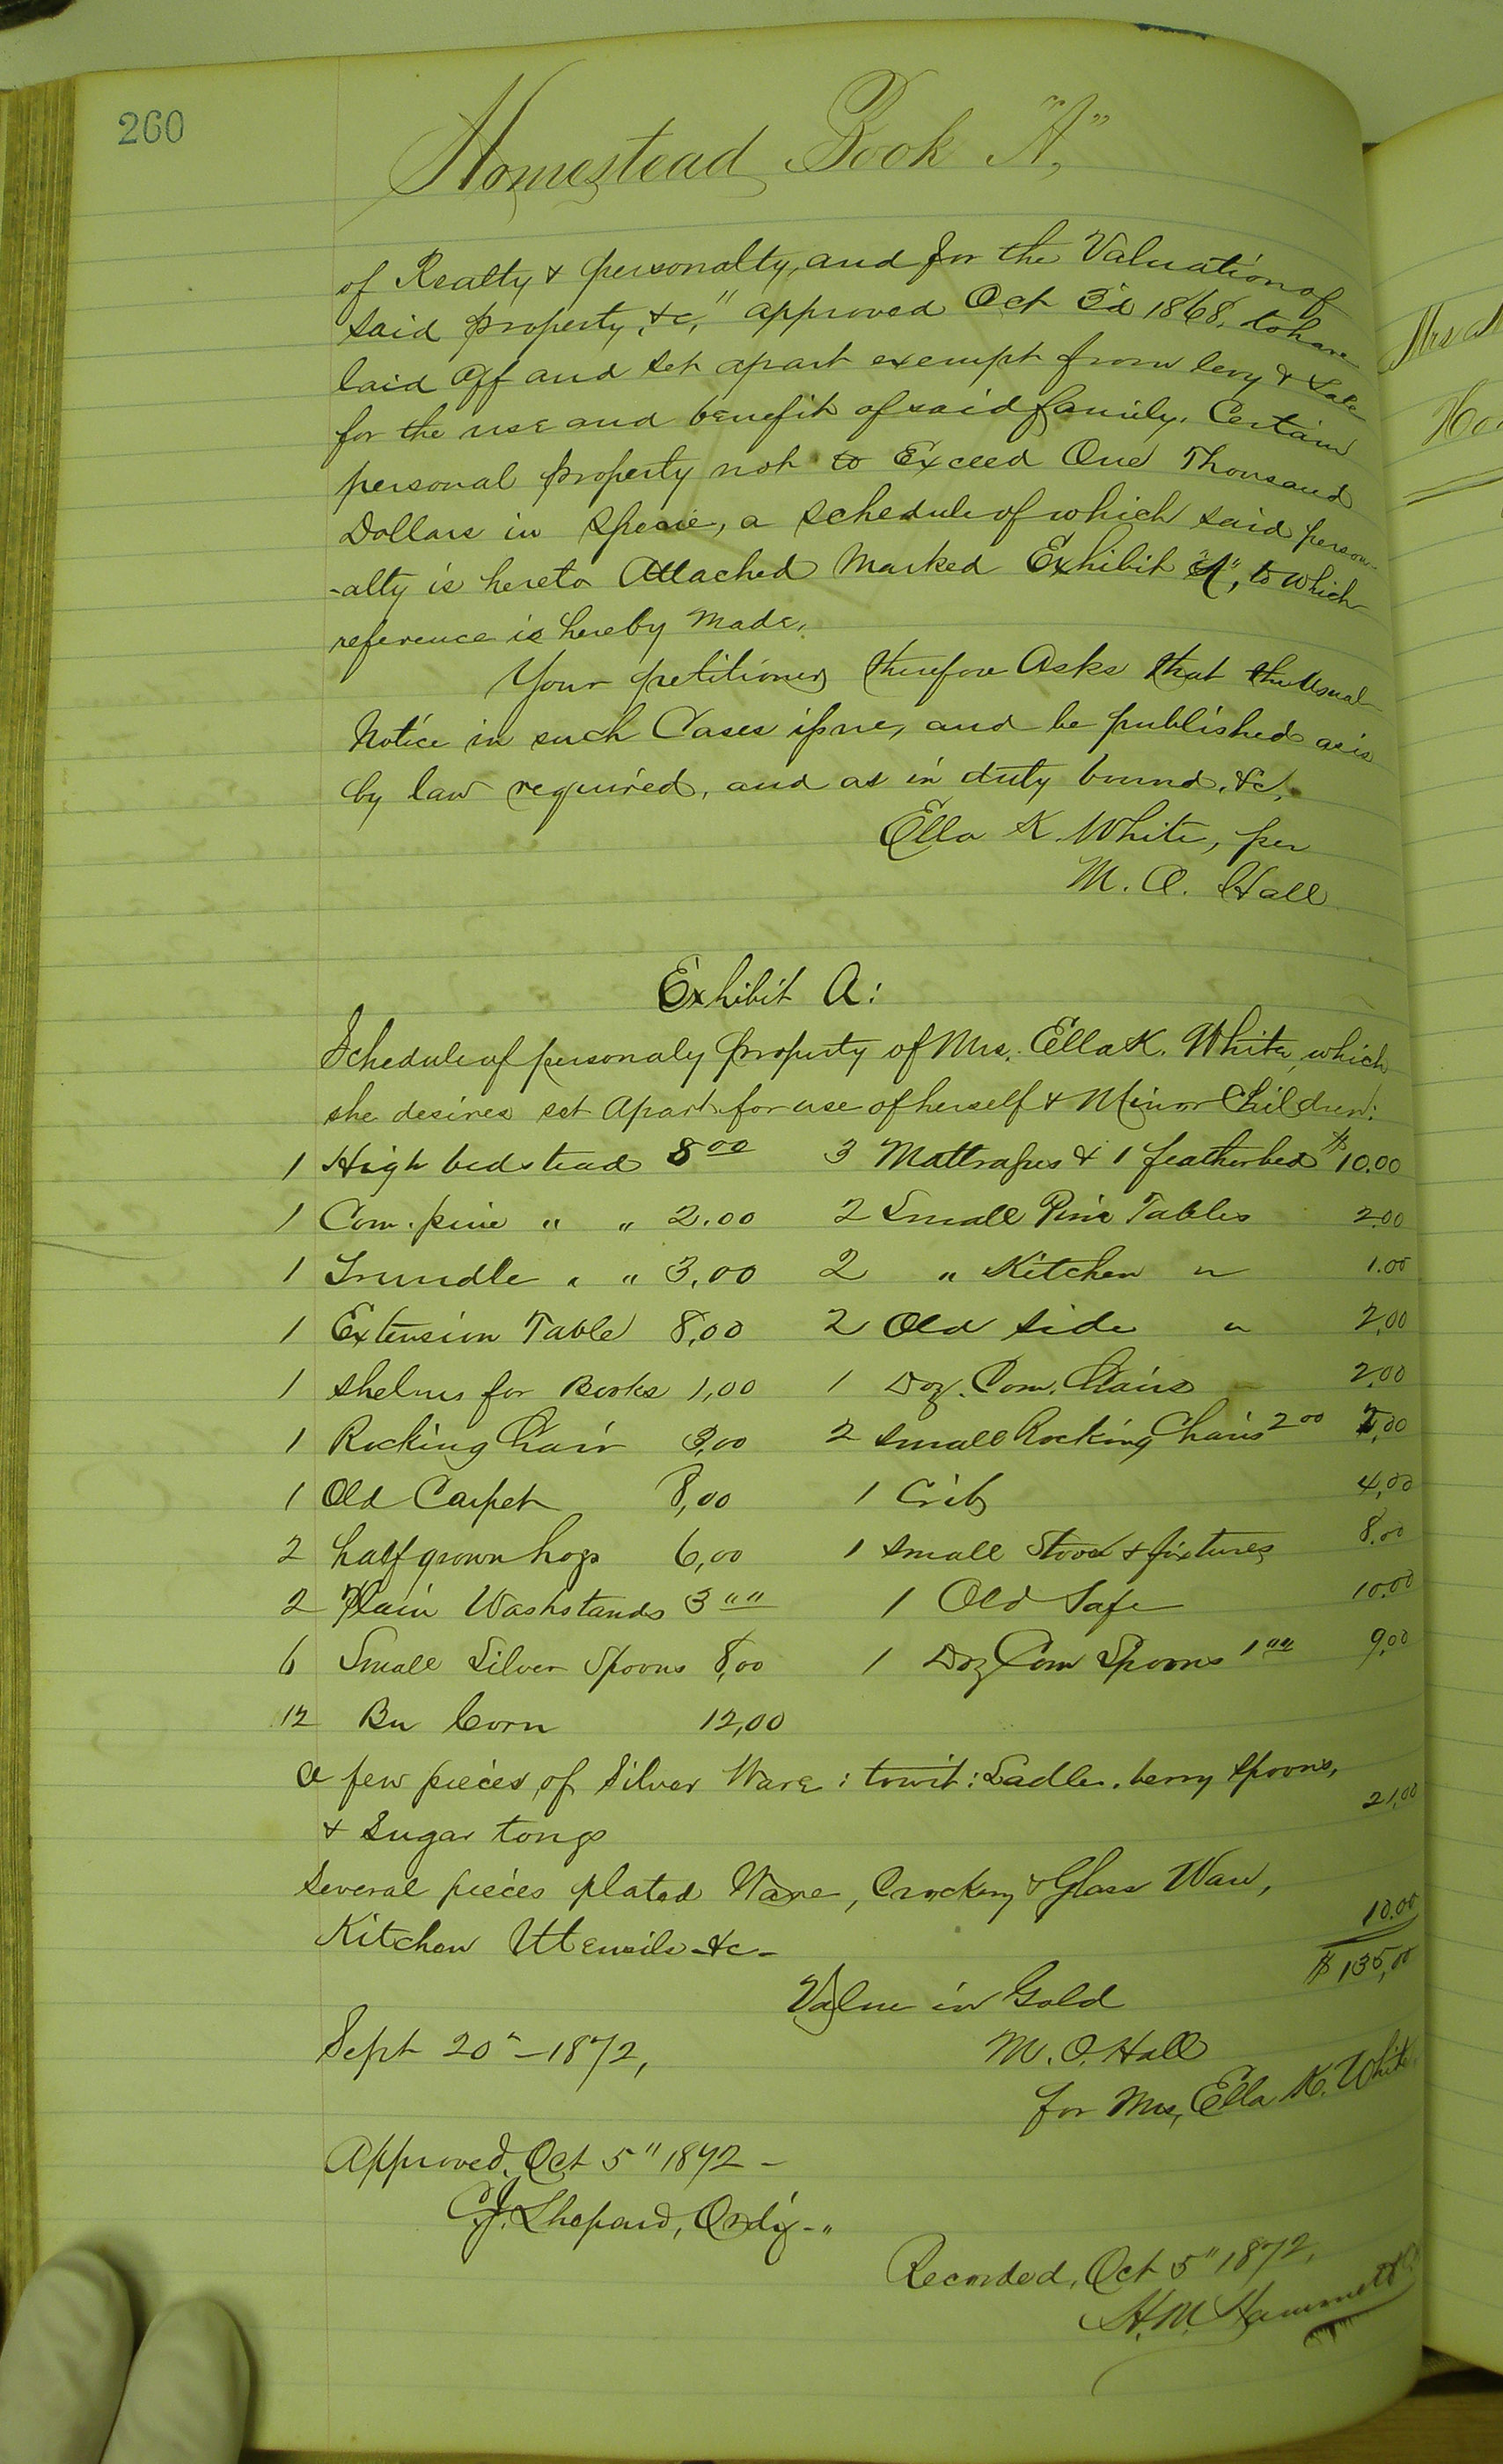 260
Homestead Book "A,"
of Realty & personalty, and for the Valuation of
said property, &c," approved Oct 3d 1868, to have
laid off and set apart exempt from levy & sale
for the use and benefit of said family. Certain
personal property not to Exceed One Thousand
Dollars in Specie, a schedule of which said person-
-alty is hereto Attached Marked Exhibit "A", to which
reference is hereby Made,
Your petitioner therefore Asks that the usual
Notice in such Cases issue, and be published as is
by law required, and as in duty bound, &c,
Ella K. White, per
M. A. Hall
Exhibit A:
Schedule of personaly property of Mrs. Ella K. White, which
she desires set Apart for use of herself & Minor Children:
1 High bedstead 8 00 3 Mattrasses & 1 featherbed $10.00
1 Com. pine " " 2.00 2 Small Pine Tables 2.00
1 Trundle " " 3,00 2 " Kitchen " 1.00
1 Extension Table 8,00 2 Old side " 2,00
1 shelves for Books 1,00 1 Doz. Com. Chairs 2,00
1 Rocking Chair 3,00 2 small Rocking Chairs 2 00
1 Old Carpet 8,00 1 Crib 4,00
2 half grown hogs 6,00 1 small Stove & fixtures 8.00
2 Plain Washstands 3 "" 1 Old Safe 10.00
6 Small Silver Spoons 8,00 1 Doz Com Spoons 1 00 9,00
12 Bu Corn 12,00
a few pieces of Silver Ware : towit: Ladle, berry Spoons,
& Sugar tongs 21,00
Several pieces plated Ware, Crockery & Glass Ware,
Kitchen Utensils &c - 10.00
$135,00
Value in Gold
Sept 20" - 1872, M. A. Hall
for Mrs, Ella K. White
Approved, Oct 5" 1872 -
C.J. Shepard, Ord'y - "
Recorded, Oct 5" 1872,
H. M. Hammett
Mrs
Ho